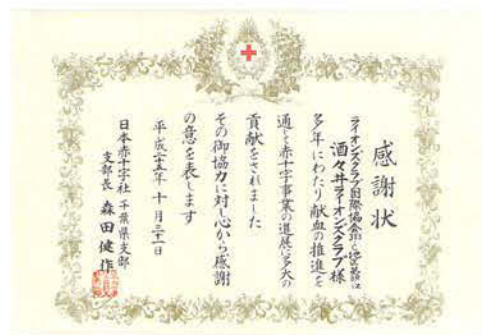 感謝状
ライオンズクラブ国際協会
酒々井ライオンズクラブ様
多年にわたり献血の推進を
通じ赤十字事業の進展に多大の
貢献をされました
その御協力に対し心から感謝
の意を表します
平成二十五年十月三十一日
日本赤十字社千葉県支部
支部長 森田健作